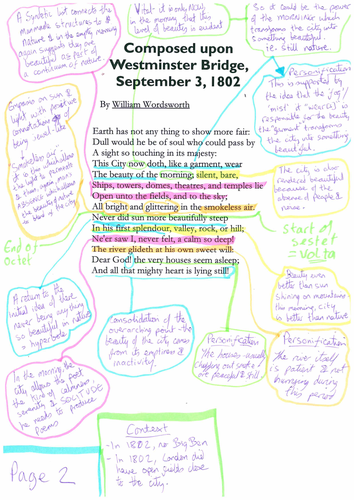 A Synthetic list connects the
manmade structures to
nature & in the empty morning
again suggests they are
beautiful as part of
a continuum of nature
What it is only Now
in the morning that this
level of beauty is evident
So it could be the power
of the morning which
transforms the city into
something beautiful
ie. still nature.
Composed upon
Westminster Bridge,
September 3, 1802
By William Wordsworth
Earth has not any thing to show more fair:
Dull would he be of soul who could pass by
A sight so touching in its majesty:
This City now doth, like a garment, wear
The beauty of the morning; silent, bare,
Ships, towers, domes, theatres, and temples lie
Open unto the fields, and to the sky;
All bright and glittering in the smokeless air.
Never did sun more beautifully steep
In his first splendour, valley, rock, or hill;
Ne'er saw I, never felt, a calm so deep!
The river glideth at his own sweet will:
Dear God! the very houses seem asleep;
And all that mighty heart is lying still!
Personification
This is supported by
the idea that the
'mist' is
responsible for the beauty
the 'garment' transforms
the city into something
beautiful.
Emphasis on sun &
light with positive
connotations of
being
The city is also
rendered beautiful
because of the
absence of people &
noise.
End of
Octet
Start of
sestet
= Volta
A return to the
initial idea of
so beautiful in nature
= hyperbole
Consolidation of the
overarching point - the
beauty of the city comes
from its emptiness &
inactivity.
Beauty even
better than sun
shining on mountains
the morning city
is better than nature
Personification
The houses - usually
chugging out smoke
are peaceful & still.
Personification
The river itself
is patient & not
hurrying during
this period
In the morning the
city allows the poet
the kind of calmness,
serenity & SOLITUDE
he needs to produce
poems
Context
- In 1802, no Big Ben
- In 1802, London did
have open fields close
to the city.
Page 2